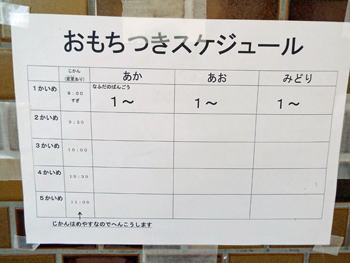 おもちつきスケジュール
じかん
(変更あり)
あか
あお
みどり
1かいめ
9:00
すぎ
なふだのばんごう
1～
1～
1～
2かいめ
9:30
3かいめ
10:00
4かいめ
10:30
5かいめ
11:00
↑
じかんはめやすなのでへんこうします